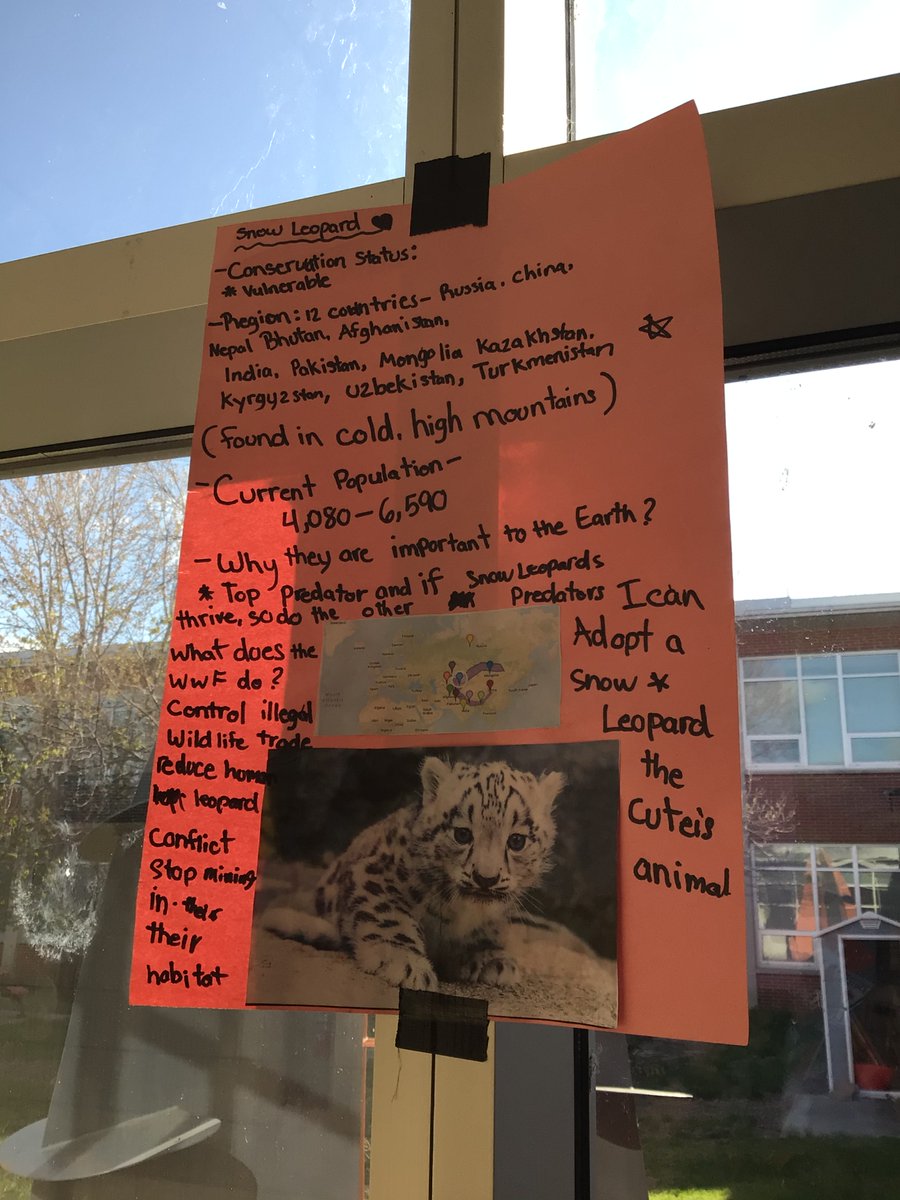 Snow Leopard
-Conservation Status:
* Vulnerable
-Region: 12 countries- Russia, China,
Nepal Bhutan, Afghanistan,
India, Pakistan, Mongolia Kazakhstan,
Kyrgyzstan, Uzbekistan, Turkmenistan
(found in cold, high mountains)
-Current Population-
4,080-6,590
-Why they are important to the Earth?
* Top Predator and if Snow Leopards
thrive, so do the other Predators
What does the
WWF do?
Control illegal
Wildlife trade
reduce human
leopard
Conflict
Stop mining
in their
their
habitat
I can
Adopt a
Snow *
Leopard
the
Cuteis
animal